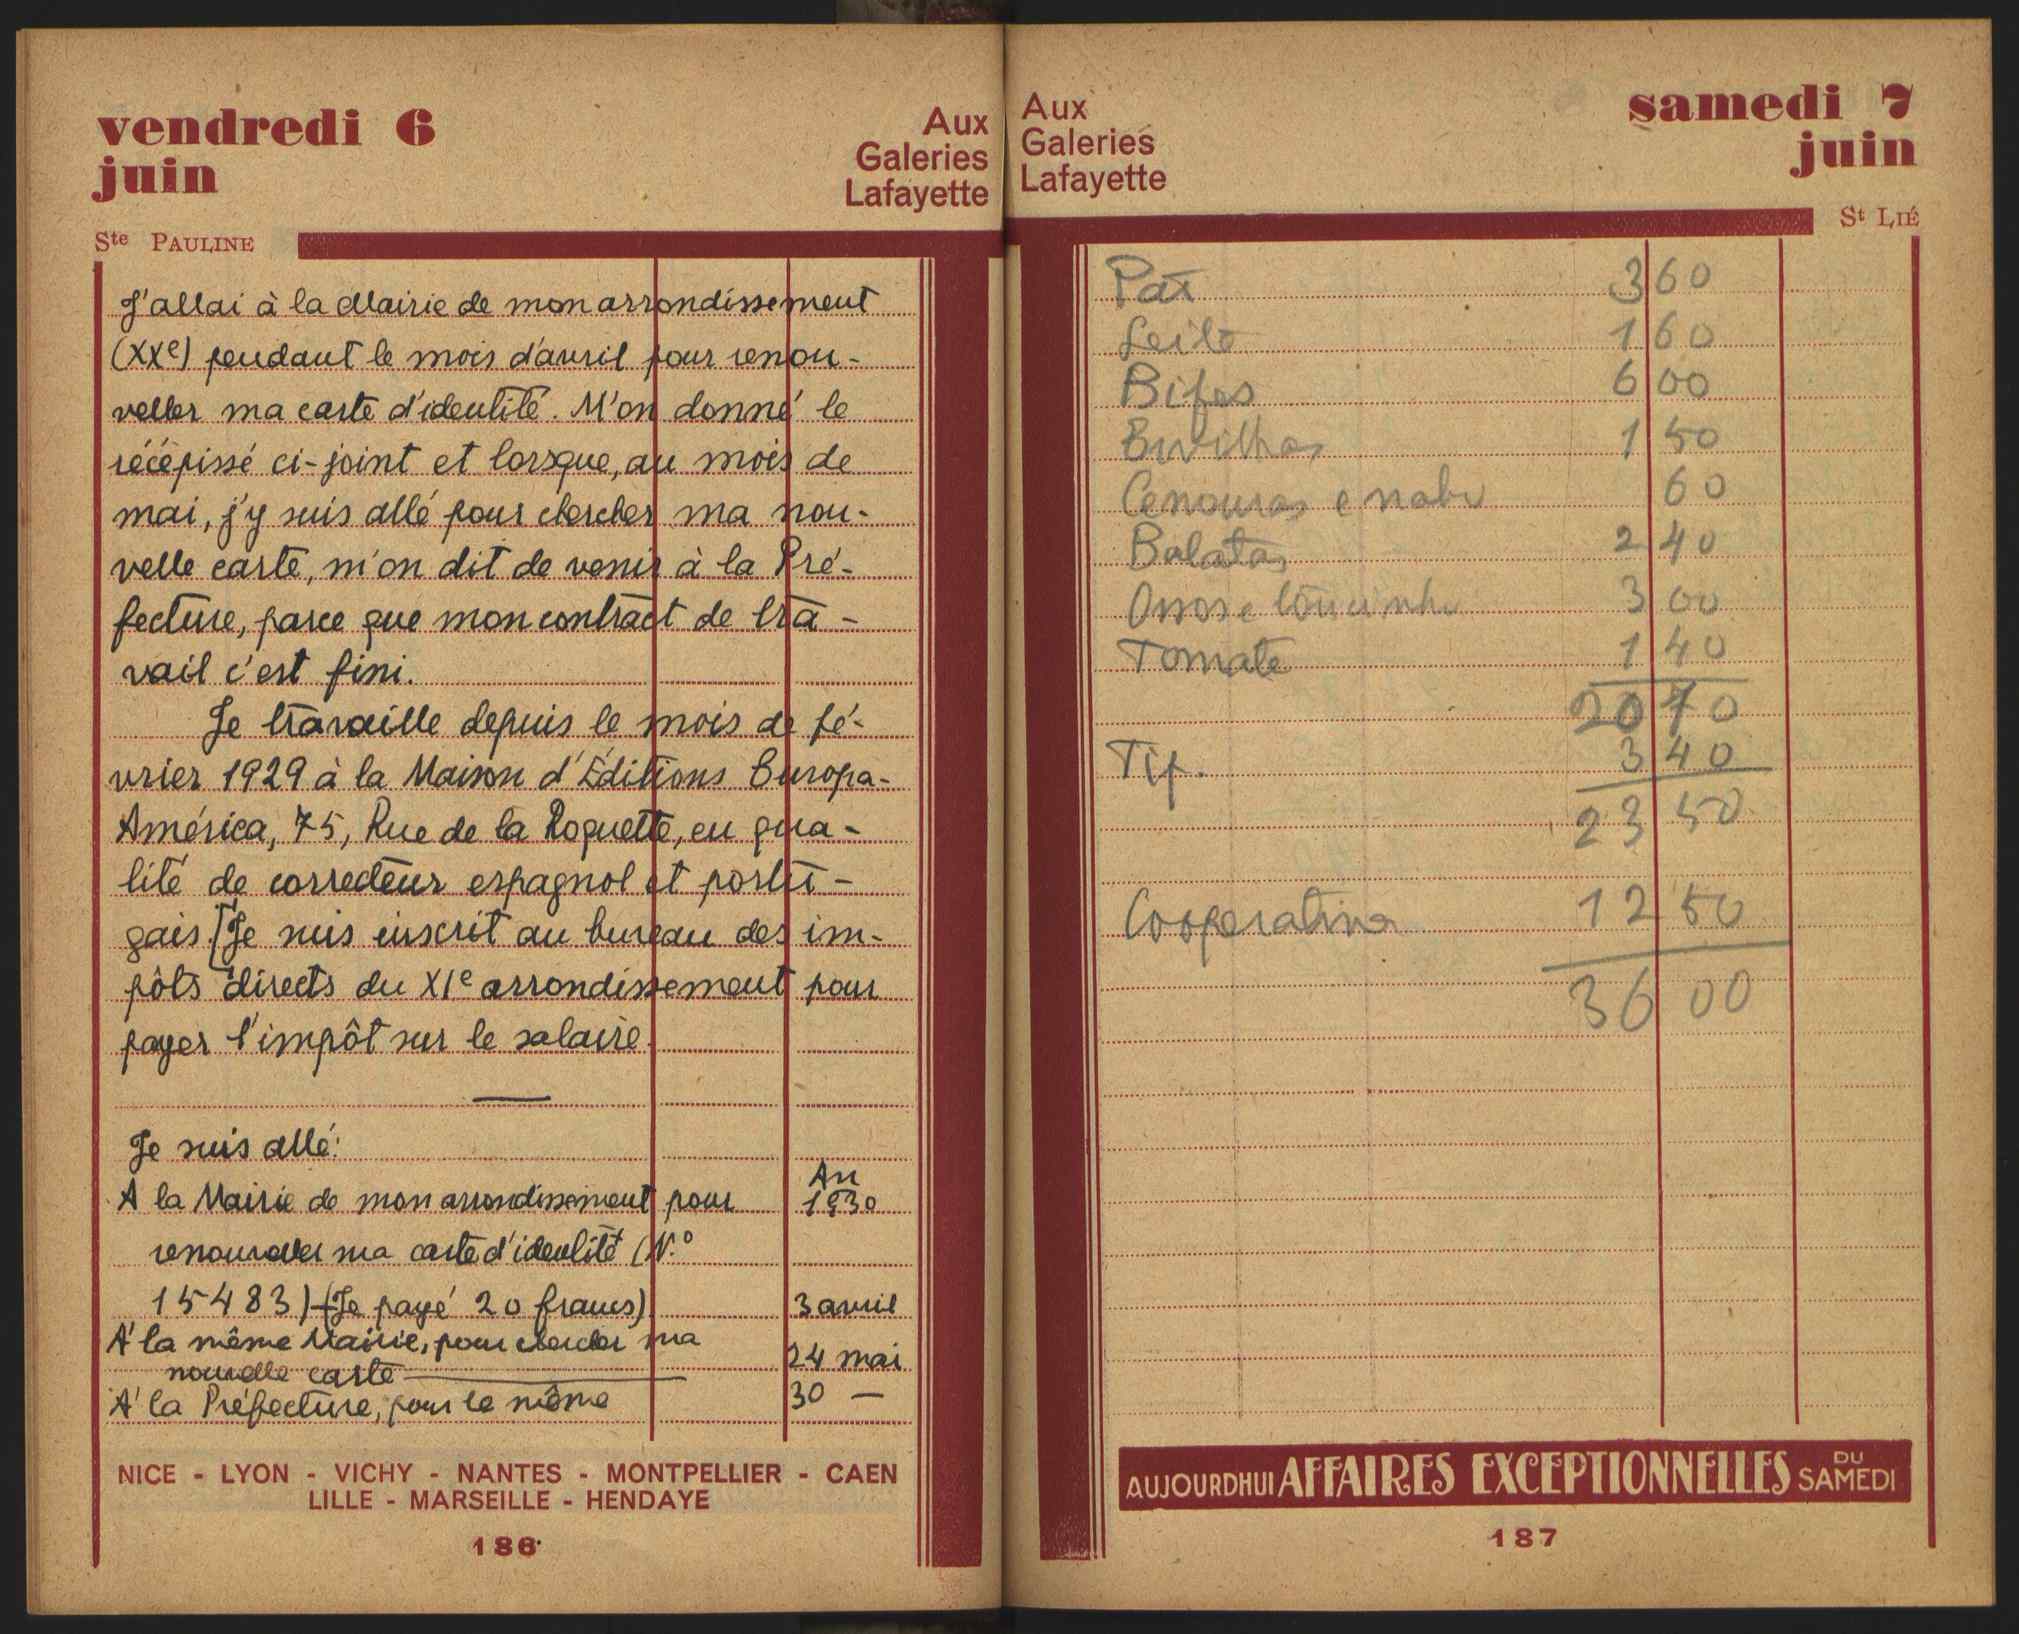 vendredi 6
juin
Aux
Galeries
Lafayette
Ste PAULINE
J'allai à la Mairie de mon arrondissement
(XXe) pendant le mois d'avril pour renou-
veller ma carte d'identité. M'on donné le
récépissé ci-joint et lorsque, au mois de
mai, j'y suis allé pour chercher ma nou-
velle carte, m'on dit de venir à la Pré-
fecture, parce que mon contract de tra-
vail c'est fini.
Je travaille depuis le mois de fé-
vrier 1929 à la Maison d'Éditions Europa-
América, 75, Rue de la Roquette, en qua-
lité de correcteur espagnol et portu-
gais. [Je suis inscrit au bureau des im-
pôts directs du XIe arrondissement pour
payer l'impôt sur le salaire.
Je suis allé:
An
A la Mairie de mon arrondissement pour 1930
renouveler ma carte d'identité (N.º
15483) - (Je payé 20 francs) 3 avril
A la même Mairie, pour chercher ma
nouvelle carte 24 mai
A la Préfecture, pour le même 30 —
NICE - LYON - VICHY - NANTES - MONTPELLIER - CAEN
LILLE - MARSEILLE - HENDAYE
186
Aux
Galeries
Lafayette
samedi 7
juin
St LIÉ
Pax 3 60
Leite 1 60
Bifes 6 00
Ervilhas 1 50
Cenouras e nabo 60
Batatas 2 40
Ossos e toucinho 3 00
Tomate 1 40
20 10
Tip. 3 40
23 50
Cooperativa 12 50
36 00
AUJOURDHUI AFFAIRES EXCEPTIONNELLES DU SAMEDI
187